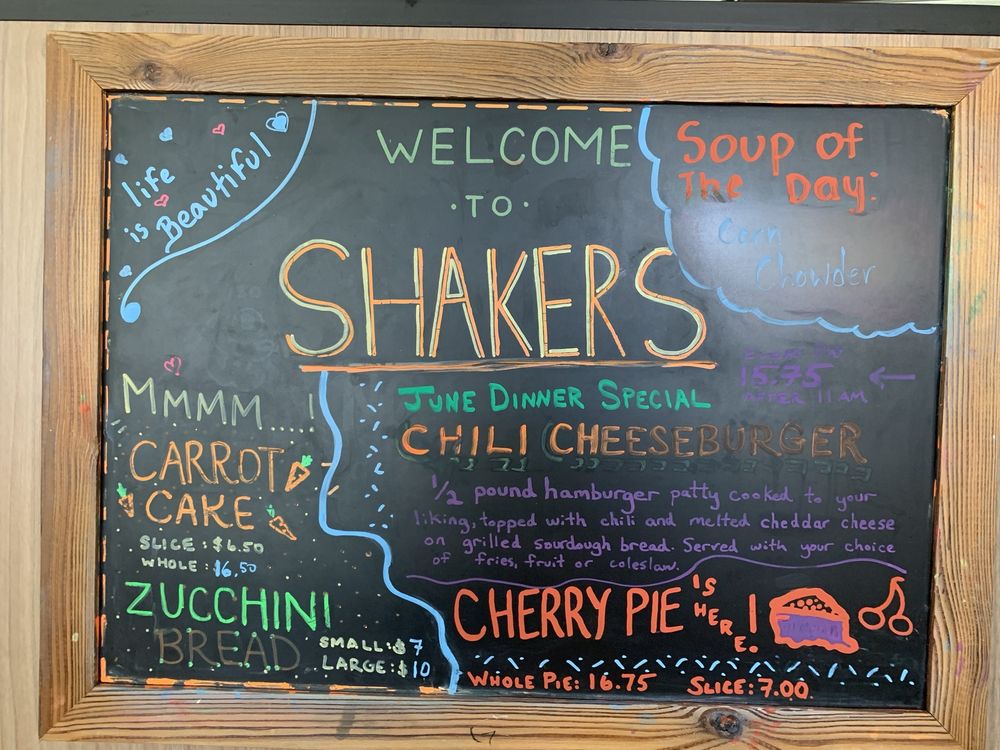 life
is Beautiful
WELCOME
·TO·
SHAKERS
Soup of
The Day:
Corn
Chowder
MMMM.....!
CARROT
CAKE
SLICE: $6.50
WHOLE: 16.50
ZUCCHINI
BREAD
SMALL: $7
LARGE: $10
15.75
AFTER 11 AM
JUNE DINNER SPECIAL
CHILI CHEESEBURGER
1/2 pound hamburger patty cooked to your
liking, topped with chili and melted cheddar cheese
on grilled sourdough bread. Served with your choice
of fries, fruit or coleslaw.
CHERRY PIE 'S HERE!
WHOLE PIE: 16.75 SLICE: 7.00